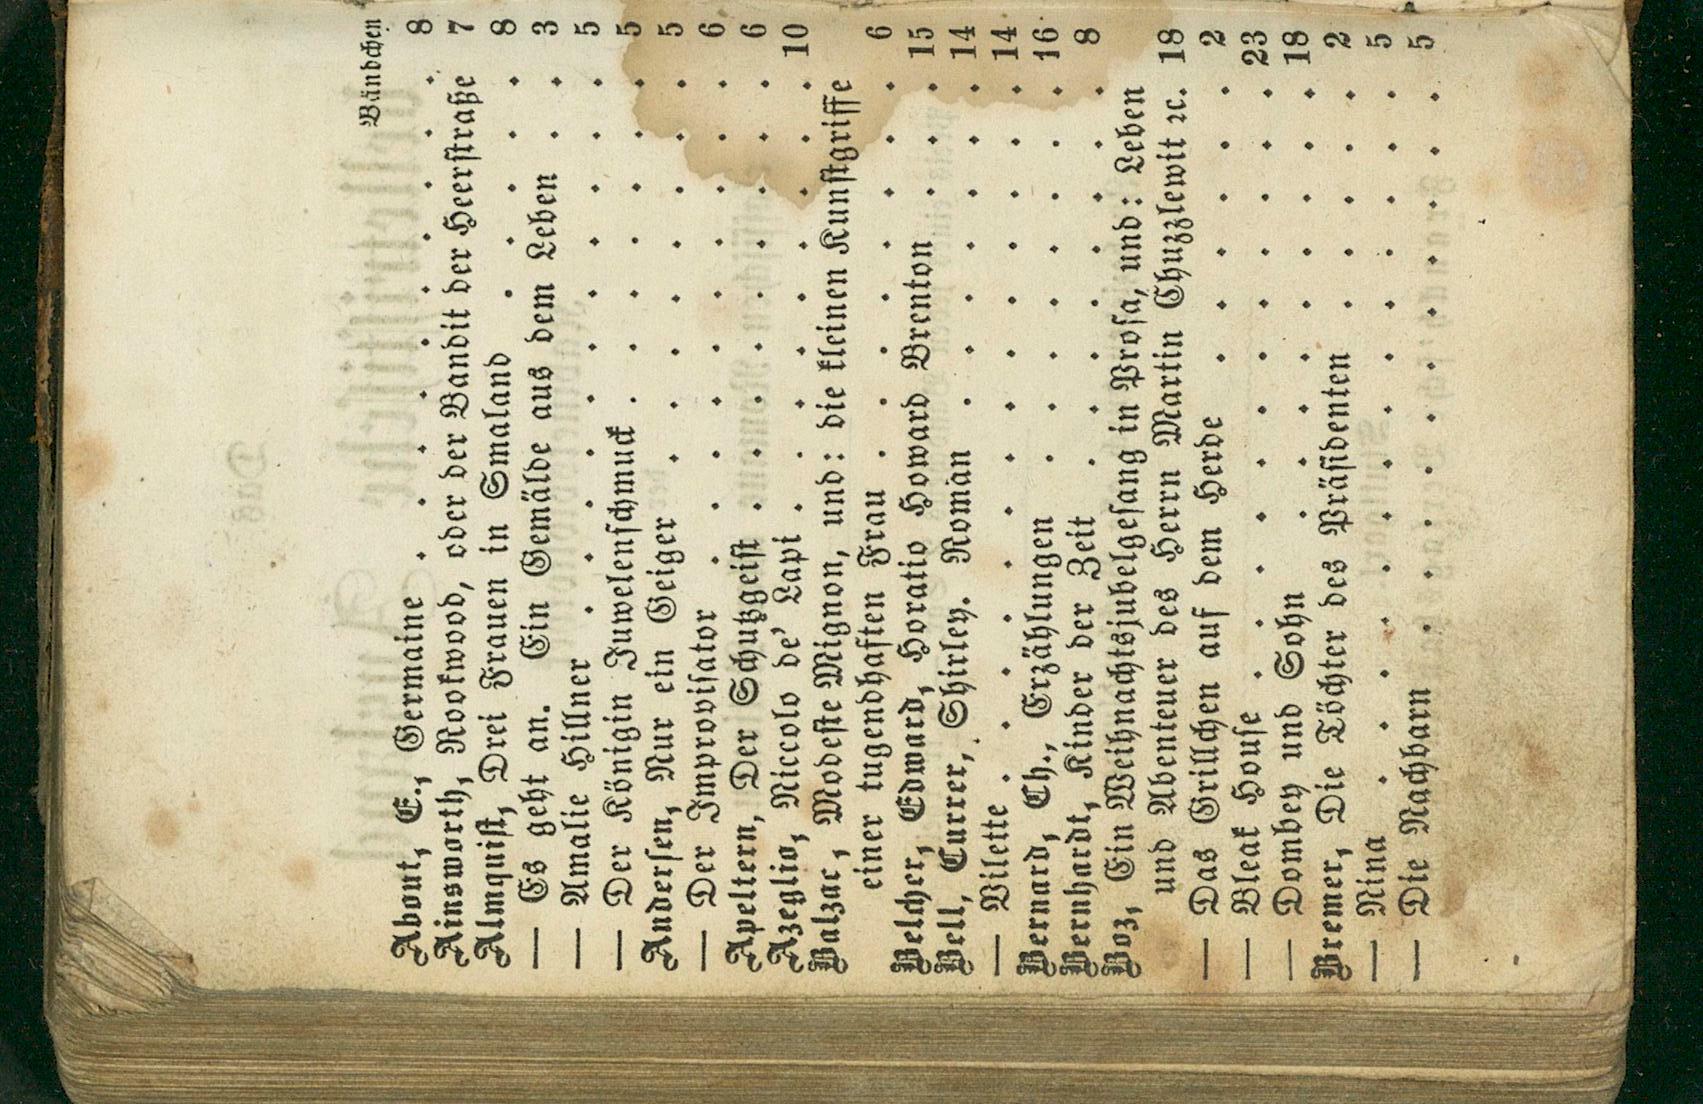 Bändchen
About, E., Germaine . . . . . . . . . . 8
Ainsworth, Rookwood, oder der Bandit der Heerstraße 7
Almquist, Drei Frauen in Smaland . . . . . 8
— Es geht an. Ein Gemälde aus dem Leben . . 3
— Amalie Hillner . . . . . . . . . . . 5
— Der Königin Juwelenschmuck . . . . . . . 5
Andersen, Nur ein Geiger . . . . . . . . 5
— Der Improvisator . . . . . . . . . . 6
Apeltern, Der Schutzgeist . . . . . . . . . 6
Azeglio, Niccolo de' Lapi . . . . . . . . . 10
Balzac, Modeste Mignon, und: die kleinen Kunstgriffe
einer tugendhaften Frau . . . . . . . . 6
Belcher, Edward, Horatio Howard Brenton . . . 15
Bell, Currer, Shirley. Roman . . . . . . . 14
— Vilette . . . . . . . . . . . . . . 14
Bernard, Ch., Erzählungen . . . . . . . . 16
Bernhardt, Kinder der Zeit . . . . . . . . 8
Boz, Ein Weihnachtsjubelgesang in Prosa, und: Leben
und Abenteuer des Herrn Martin Chuzzlewit ꝛc. 18
— Das Grillchen auf dem Herde . . . . . . 2
— Bleak House . . . . . . . . . . . . 23
— Dombey und Sohn . . . . . . . . . 18
Bremer, Die Töchter des Präsidenten . . . . . 2
— Nina . . . . . . . . . . . . . . 5
— Die Nachbarn . . . . . . . . . . . . 5